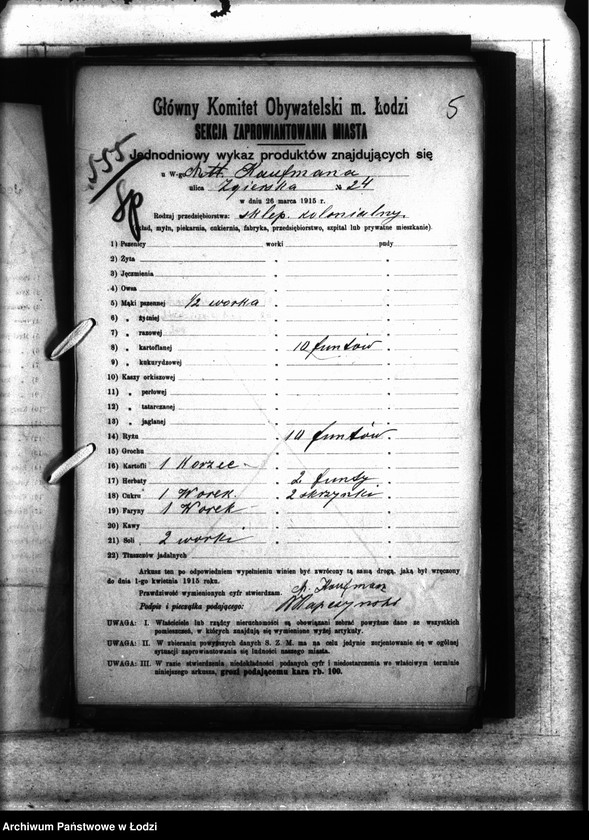 Główny Komitet Obywatelski m. Łodzi
5
SEKCJA ZAPROWIANTOWANIA MIASTA
555
Jednodniowy wykaz produktów znajdujących się
u W-go Kaufmana
ulica Zgierska № 24
w dniu 26 marca 1915 r.
Sp
Rodzaj przedsiębiorstwa: sklep kolonialny.
kład, młyn, piekarnia, cukiernia, fabryka, przedsiębiorstwo, szpital lub prywatne mieszkanie).
1) Pszenicy worki pudy
2) Żyta " "
3) Jęczmienia " "
4) Owsa " "
5) Mąki pszennej 1/2 worka " "
6) " żytniej " "
7) " razowej " "
8) " kartoflanej " 10 funtów "
9) " kukurydzowej " "
10) Kaszy orkiszowej " "
11) " perłowej " "
12) " tatarczanej " "
13) " jaglanej " "
14) Ryżu " 10 funtów "
15) Grochu " "
16) Kartofli 1 Korzec " "
17) Herbaty " 2 funty "
18) Cukru 1 Worek " 2 skrzynki "
19) Faryny 1 Worek " "
20) Kawy " "
21) Soli 2 worki " "
22) Tłuszczów jadalnych " "
Arkusz ten po odpowiedniem wypełnieniu winien być zwrócony tą samą drogą, jaką był wręczony
do dnia 1-go kwietnia 1915 roku.
Prawdziwość wymienionych cyfr stwierdzam. Kaufman
Podpis i pieczątka podającego:
UWAGA: I. Właściciele lub rządcy nieruchomości są obowiązani zebrać powyższe dane ze wszystkich
pomieszczeń, w których znajdują się wymienione wyżej artykuły.
UWAGA: II. W zbieraniu powyższych danych S. Z. M. ma na celu jedynie zorjentowanie się w ogólnej
sytuacji zaprowiantowania się ludności naszego miasta.
UWAGA: III. W razie stwierdzenia niedokładności podanych cyfr i niedostarczenia we właściwym terminie
niniejszego arkusza, grozi podającemu kara rb. 100.
Archiwum Państwowe w Łodzi